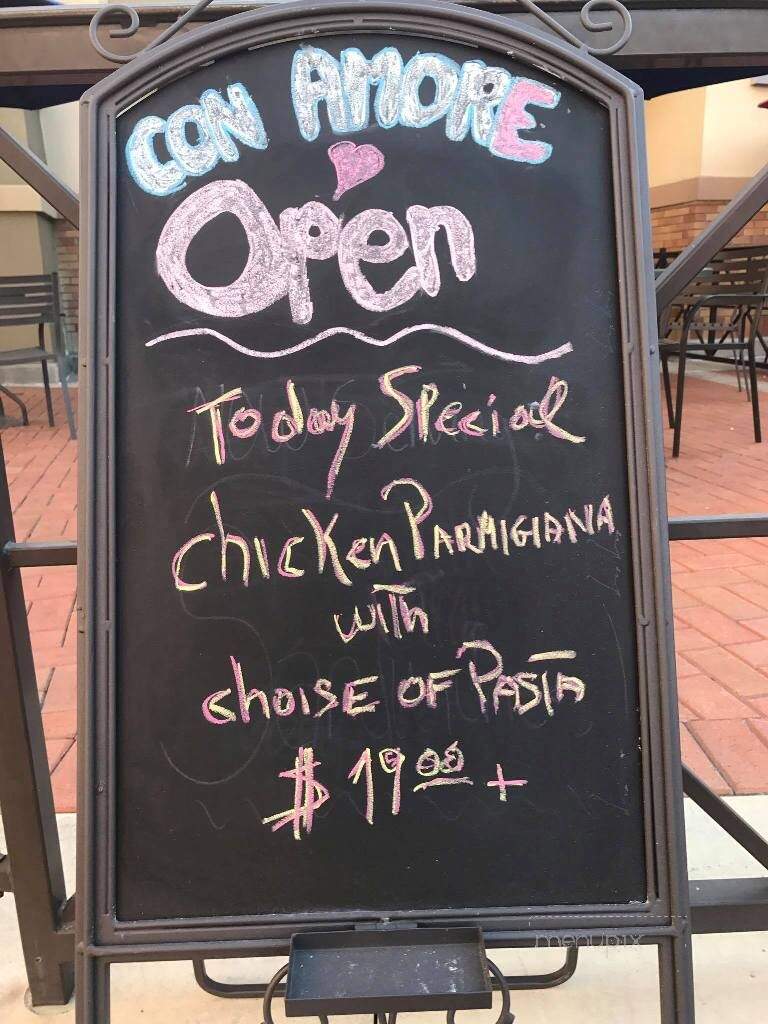 CON AMORE
Open
Today Special
chicken PARMIGIANA
with
choise OF PASTA
$ 19.00 +
menupix